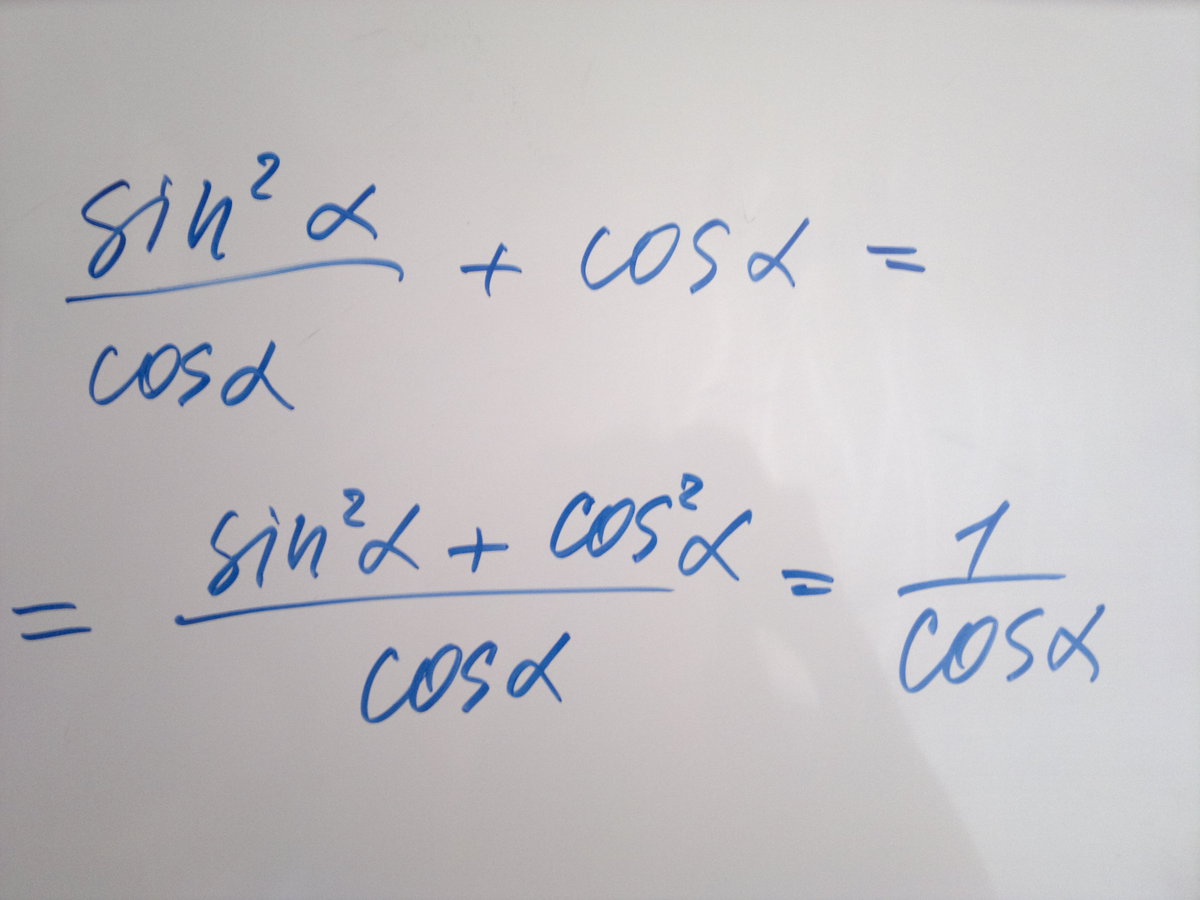 sin² α / cos α + cos α =
= sin² α + cos² α / cos α = 1 / cos α